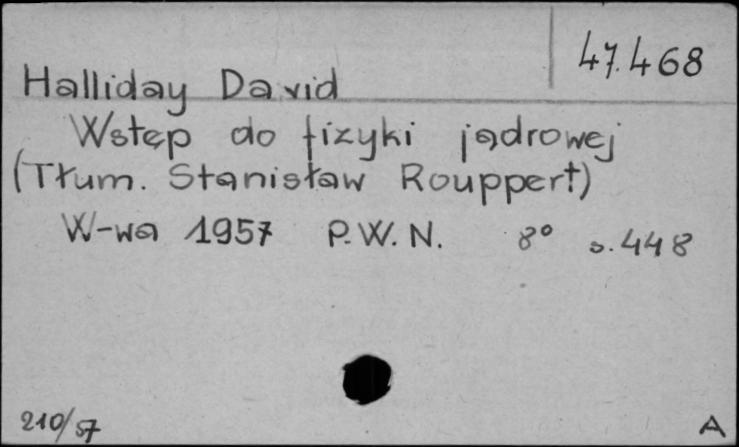 47.468
Halliday David
Wstęp do fizyki jądrowej
(Tłum. Stanisław Rouppert)
W-wa 1957 P.W.N. 8° s. 448
210/57
A